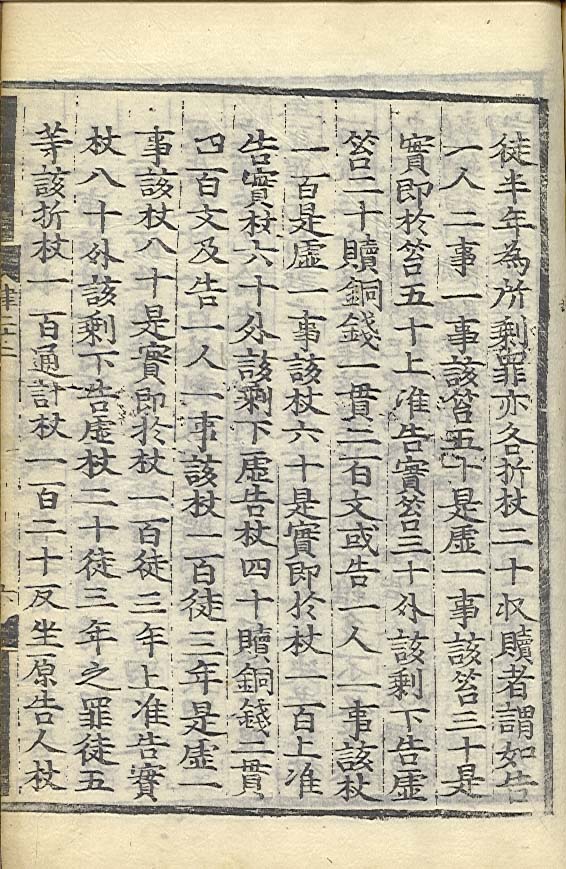 徒半年為所剩罪亦各折杖二十收贖者謂如告
一人二事一事該笞五十是虛一事該笞三十是
實即於笞五十上准告實笞三十外該剩下告虛
笞二十贖銅錢一貫二百文或告一人一事該杖
一百是虛一事該杖六十是實即於杖一百上准
告實杖六十外該剩下虛告杖四十贖銅錢二貫
四百文及告一人一事該杖一百徒三年是虛一
事該杖八十是實即於杖一百徒三年上准告實
杖八十外該剩下告虛杖二十徒三年之罪徒五
等該折杖一百通計杖一百二十反坐原告人杖